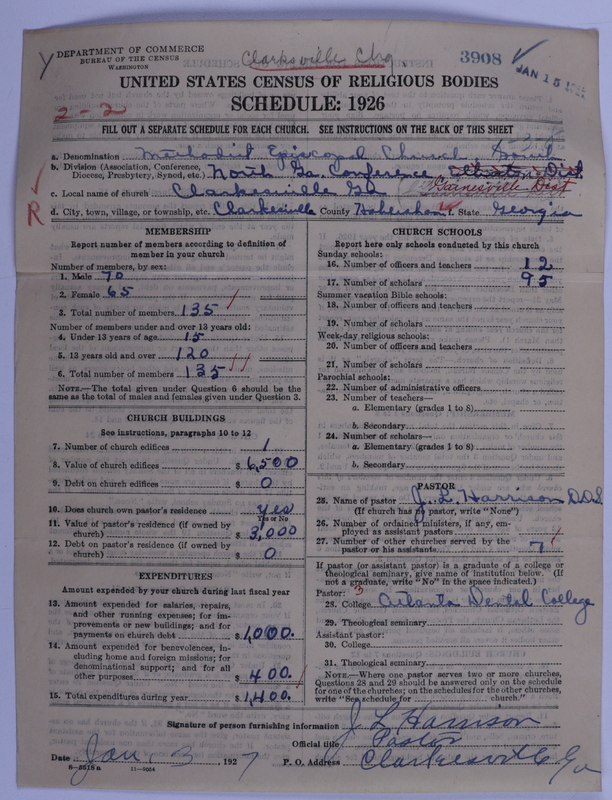 DEPARTMENT OF COMMERCE
BUREAU OF THE CENSUS
WASHINGTON
Clarksville Chg
3908
JAN 15
UNITED STATES CENSUS OF RELIGIOUS BODIES
SCHEDULE: 1926
2-2
FILL OUT A SEPARATE SCHEDULE FOR EACH CHURCH. SEE INSTRUCTIONS ON THE BACK OF THIS SHEET
a. Denomination Methodist Episcopal Church South
b. Division (Association, Conference, Diocese, Presbytery, Synod, etc.) North Ga. Conference Elberton Dist
Gainesville Dist
c. Local name of church Clarkesville Ga
R
d. City, town, village, or township, etc. Clarkesville County Habersham f. State Georgia
MEMBERSHIP
Report number of members according to definition of
member in your church
Number of members, by sex:
1. Male 70
2. Female 65
3. Total number of members 135
Number of members under and over 13 years old:
4. Under 13 years of age 15
5. 13 years old and over 120
6. Total number of members 135
NOTE.—The total given under Question 6 should be the
same as the total of males and females given under Question 3.
CHURCH BUILDINGS
See instructions, paragraphs 10 to 12
7. Number of church edifices 1
8. Value of church edifices $ 6,500
9. Debt on church edifices $ 0
10. Does church own pastor's residence yes
Yes or No
11. Value of pastor's residence (if owned by
church) $ 3,000
12. Debt on pastor's residence (if owned by
church) $ 0
EXPENDITURES
Amount expended by your church during last fiscal year
13. Amount expended for salaries, repairs,
and other running expenses; for im-
provements or new buildings; and for
payments on church debt $ 1,000.
14. Amount expended for benevolences, in-
cluding home and foreign missions; for
denominational support; and for all
other purposes $ 400.
15. Total expenditures during year $ 1,400.
CHURCH SCHOOLS
Report here only schools conducted by this church
Sunday schools:
16. Number of officers and teachers 12
17. Number of scholars 95
Summer vacation Bible schools:
18. Number of officers and teachers
19. Number of scholars
Week-day religious schools:
20. Number of officers and teachers
21. Number of scholars
Parochial schools:
22. Number of administrative officers
23. Number of teachers—
a. Elementary (grades 1 to 8)
b. Secondary
24. Number of scholars—
a. Elementary (grades 1 to 8)
b. Secondary
PASTOR
25. Name of pastor J. L. Harrison D.D.S.
(If church has no pastor, write "None")
26. Number of ordained ministers, if any, em-
ployed as assistant pastors
27. Number of other churches served by the
pastor or his assistants 7
If pastor (or assistant pastor) is a graduate of a college or
theological seminary, give name of institution below. (If
not a graduate, write "No" in the space indicated.)
Pastor: 3
28. College Atlanta Dental College
29. Theological seminary
Assistant pastor:
30. College
31. Theological seminary
NOTE.—Where one pastor serves two or more churches,
Questions 28 and 29 should be answered only on the schedule
for one of the churches; on the schedules for the other churches,
write "See schedule for church."
Signature of person furnishing information J L Harrison
Official title Pastor
Date Jan. 3 1927 P. O. Address Clarkesville Ga
8—5518a 11—9054